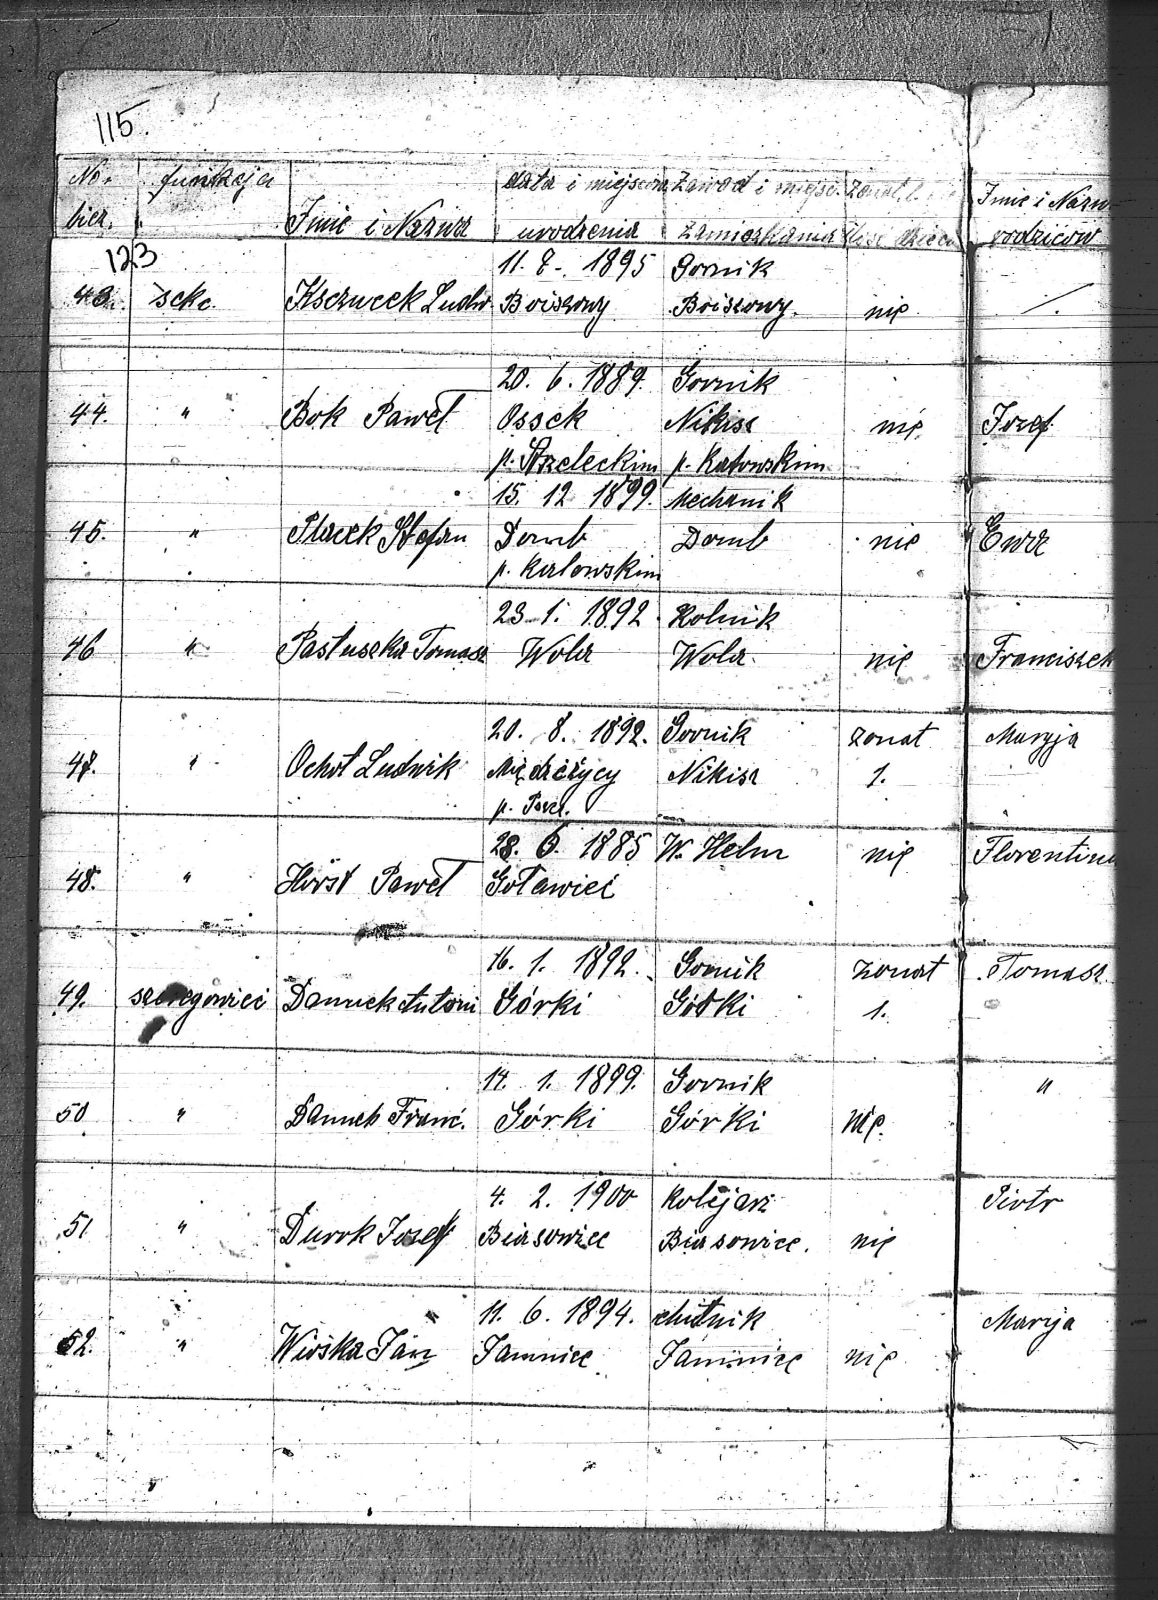 115.
No. bież. funkcja Imie i Nazwa data i miejsce urodzenia Zawod i miejsc zamieszkania zonat, l. ilość dzieci Imie i Nazw rodziców
123
43. sekc. Ksczucek Ludw. 11. 7. 1895 Boiszowy Gornik Boiszowy. nie /.
44. " Bok Paweł 20. 6. 1889. Ossek p. Strzeleckim Gornik Nikisz p. Katowskim nie. Jozef
45. " Placek Stefan 15. 12 1899. Domb p. Katowskim Mechanik Domb nie Ewa
46 " Pastuszka Tomasz 23. 1. 1892. Wola Rolnik Wola. nie Franciszek
47. " Ochot Ludwik 20. 8. 1892. Międzeżycy p. Pszcz. Gornik Nikisz zonat 1. Maryja
48. " Horst Paweł 28. 6. 1885 Goławieć W. Helm nie Florentina
49. szeregowieć Danuck Antoni 16. 1. 1892. Górki Gornik Górki zonat 1. Tomasz
50. " Danuck Franć. 14. 1. 1899. Górki Gornik Górki nie. "
51 " Durok Josef 4. 2. 1900 Biasowice Kolejarz Biasowice. nie Piotr
52. " Wioska Jan 11. 6. 1894. Jamnice chutnik Jamnice nie Maryja